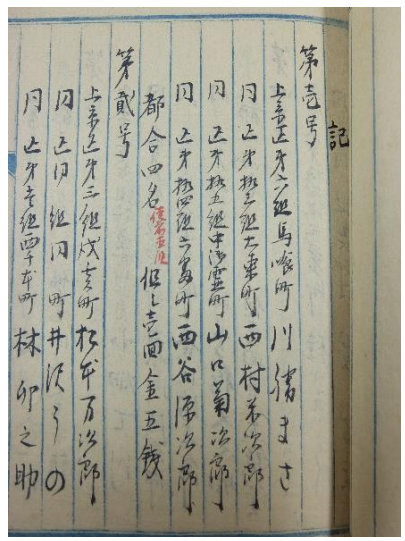 記
第壱号
上京区第六組馬喰町 川勝まさ
同 区第拾三組大東町 西村米次郎
同 区第拾五組中御霊町 山口菊次郎
同 区第拾四組六番町 西谷源次郎
都合四名 但シ壱回金五銭
第貳号
上京区第三組戌亥町 松本万次郎
同 区同組同町 井沢うの
同 区第壱組四千本町 林卯之助